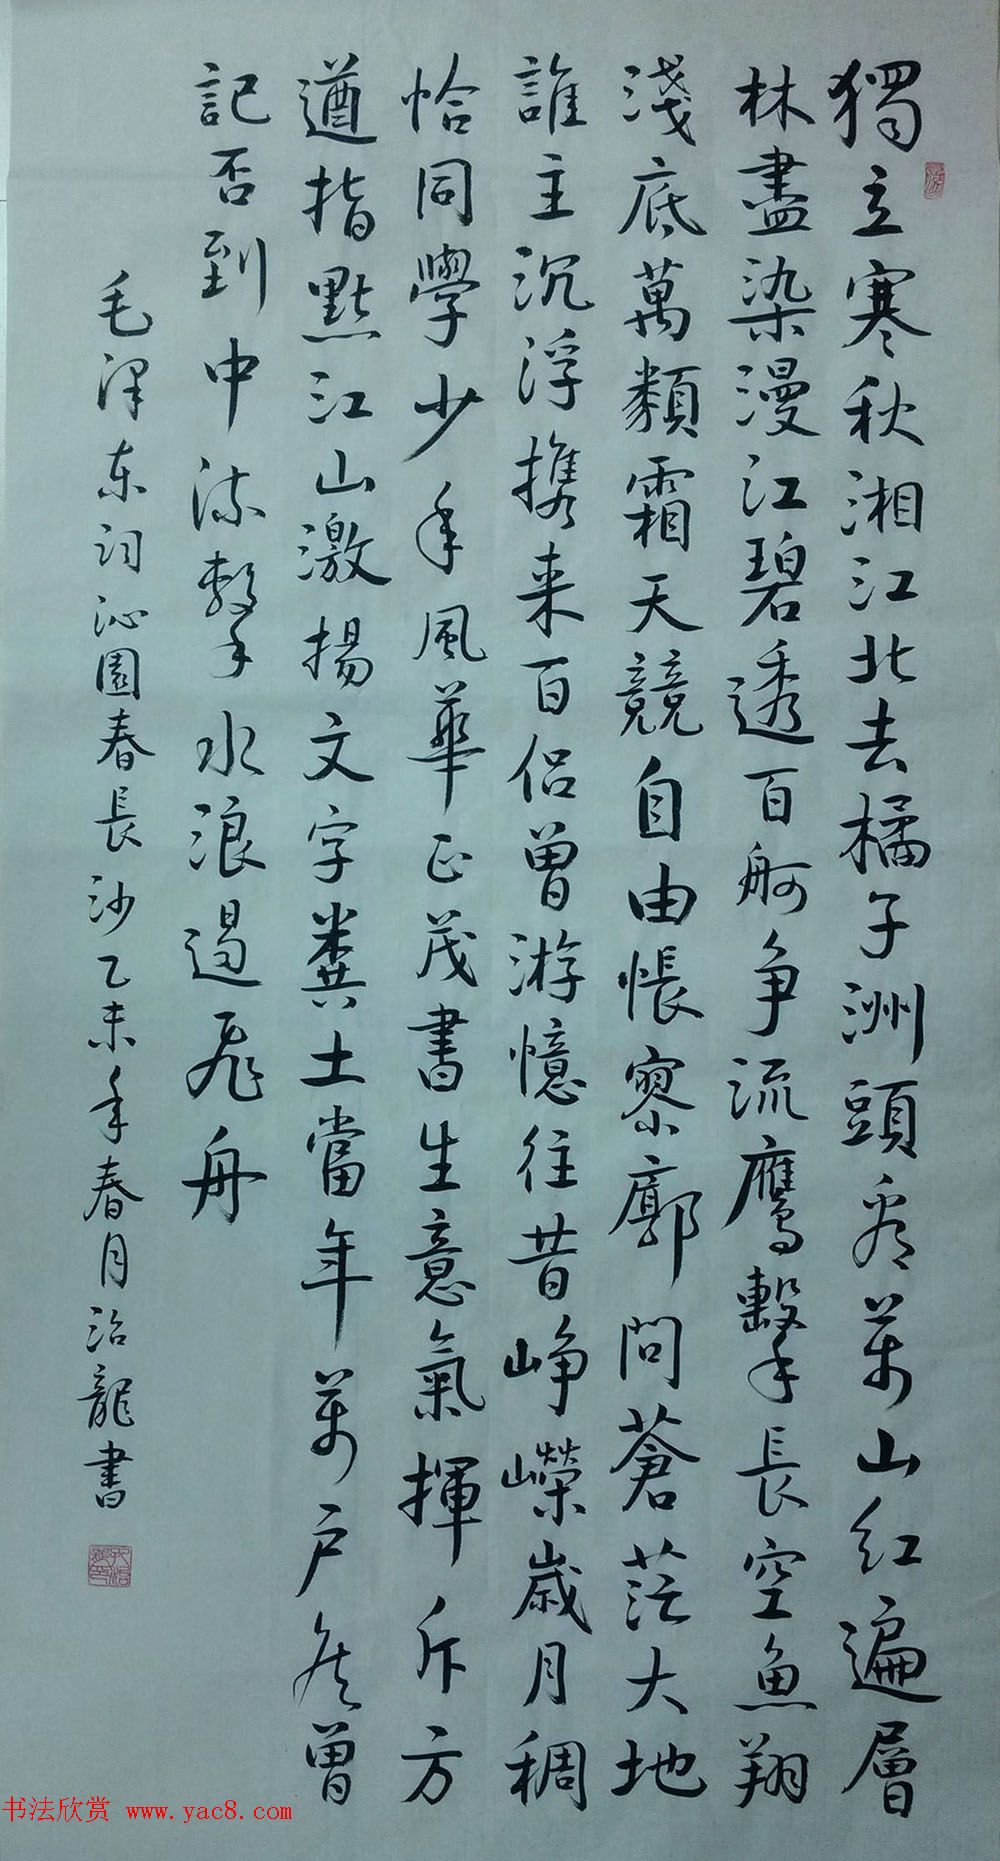 獨立寒秋湘江北去橘子洲頭看萬山紅遍層
林盡染漫江碧透百舸争流鷹擊長空魚翔
淺底萬類霜天競自由悵寥廓問蒼茫大地
誰主沉浮携来百侣曾游憶往昔峥嶸歲月稠
恰同學少年風華正茂書生意氣揮斥方
遒指點江山激揚文字糞土當年萬户侯曾
記否到中流擊水浪遏飛舟
毛澤东词沁園春長沙乙未年春月治龍書
书法欣赏 www.yac8.com